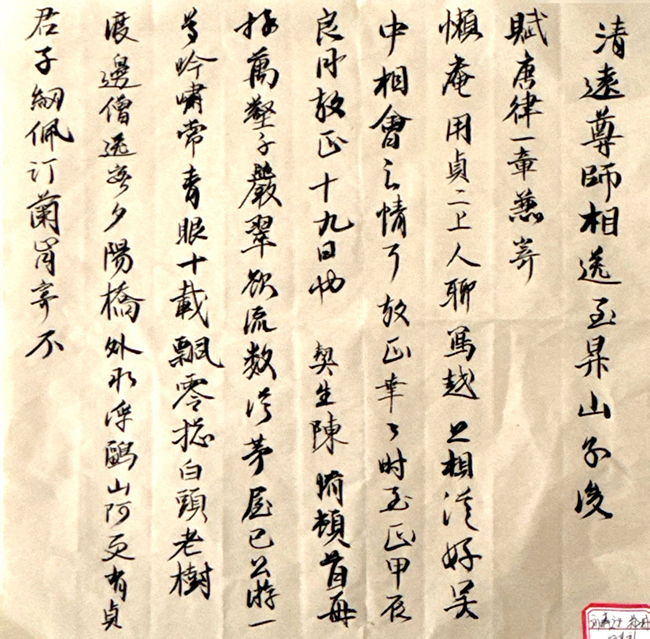 清遠尊師相送至昇山
賦唐律一章兼寄
懶庵用貞二上人聊寫越上相從好吳
中相會之情耳放正幸々時至正甲辰
良月放正十九日也 契生陳脩頓首再
拜萬壑千巖翠欲流數行茅屋已公游一
尊吟嘯常青眼十載飄零總白頭老樹
渡邊僧送客夕陽橋外水浮鷗山阿更有貞
君子紉佩汀蘭肯寄不